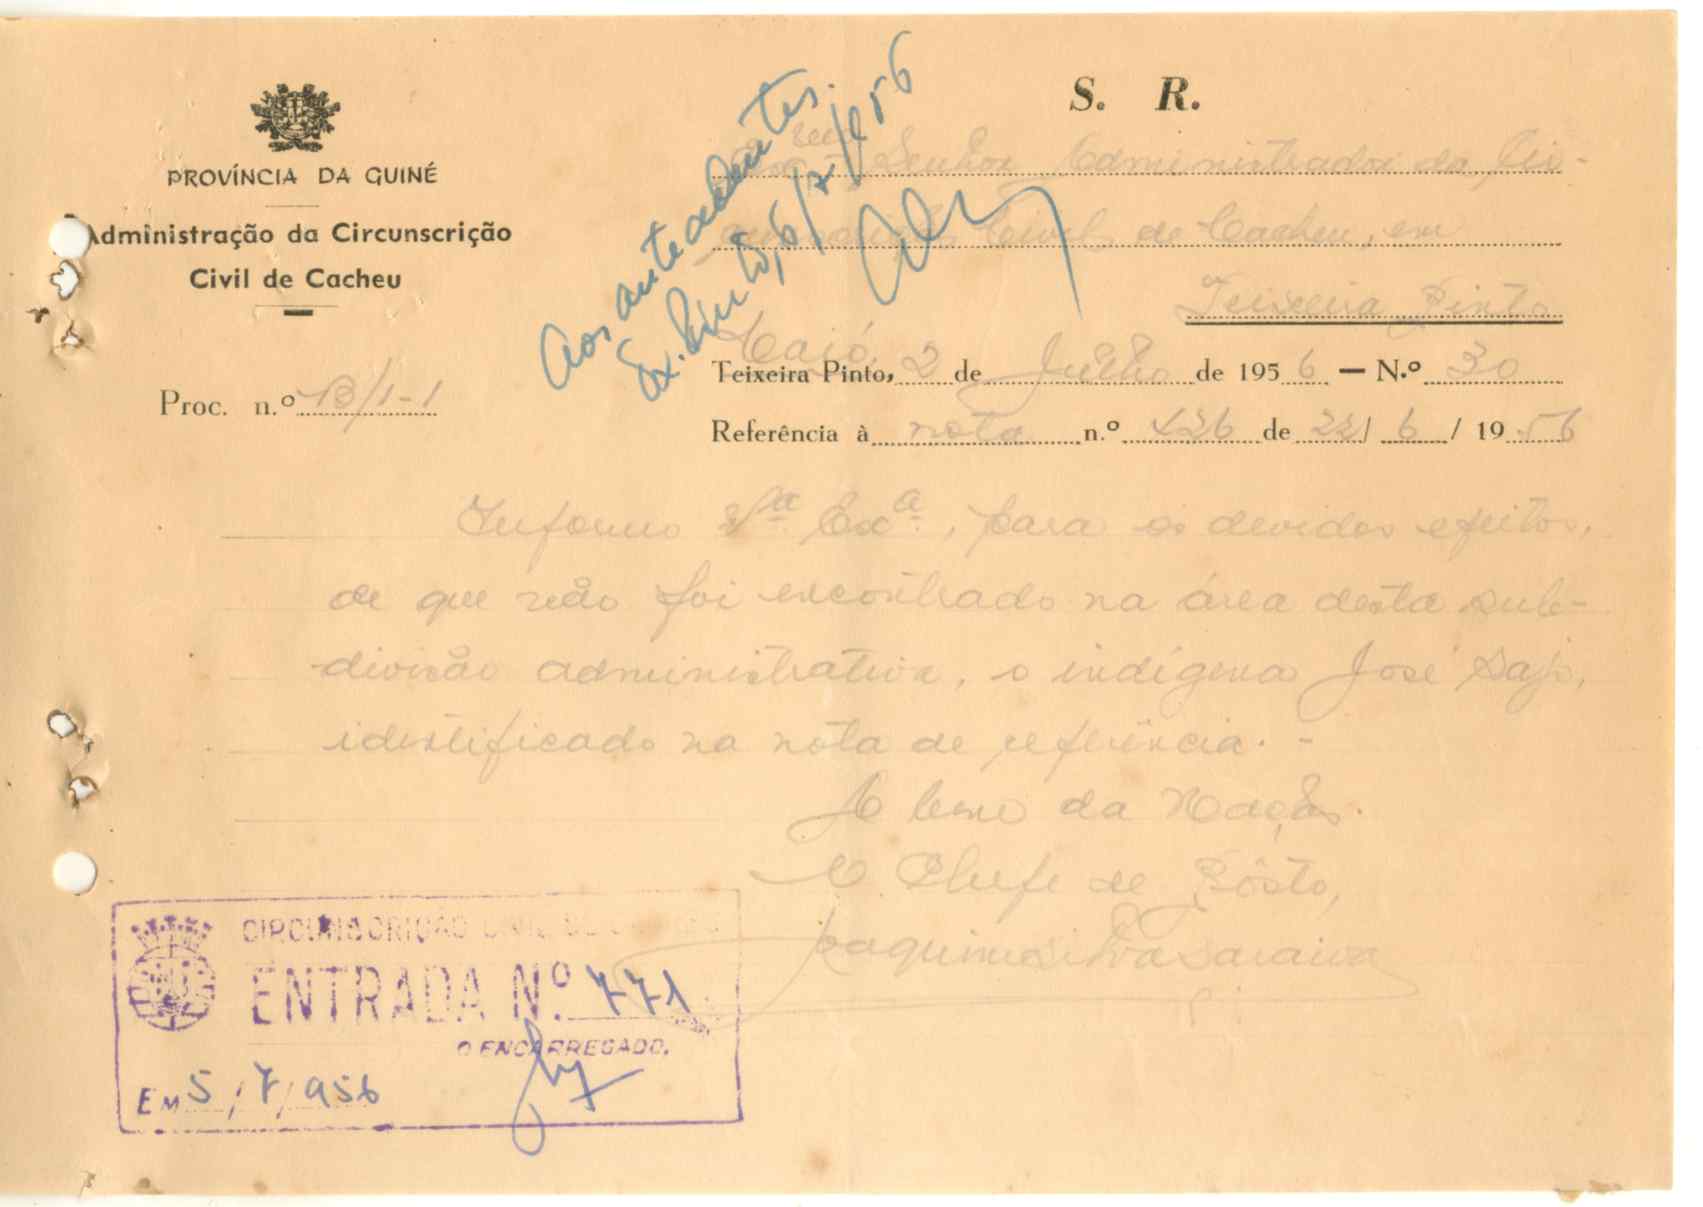 S. R.
PROVÍNCIA DA GUINÉ
Administração da Circunscrição
Civil de Cacheu
Aos antecedentes.
6/7/956
Senhor Administrador da Cir-
Civil de Cacheu, em
Teixeira Pinto
Caió,
Teixeira Pinto, 2 de Julho de 1956 — N.º 30
Proc. n.º B/1-1
Referência à nota n.º 426 de 22/ 6 / 1956
Informo Vª Exª, para os devidos efeitos,
de que não foi encontrado na área desta sub-
divisão administrativa, o indígena José
identificado na nota de referência. -
A bem da Nação.
O Chefe de Pôsto,
Joaquim Silva Saraiva
CIRCUNSCRIÇÃO CIVIL DE
ENTRADA N.º 771
O ENCARREGADO,
EM 5 / 7 / 956